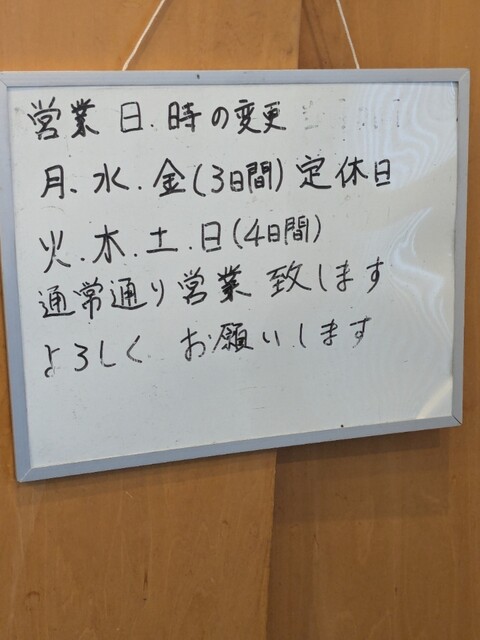 営業日.時の変更
月.水.金(3日間)定休日
火.木.土.日(4日間)
通常通り営業致します
よろしく お願いします